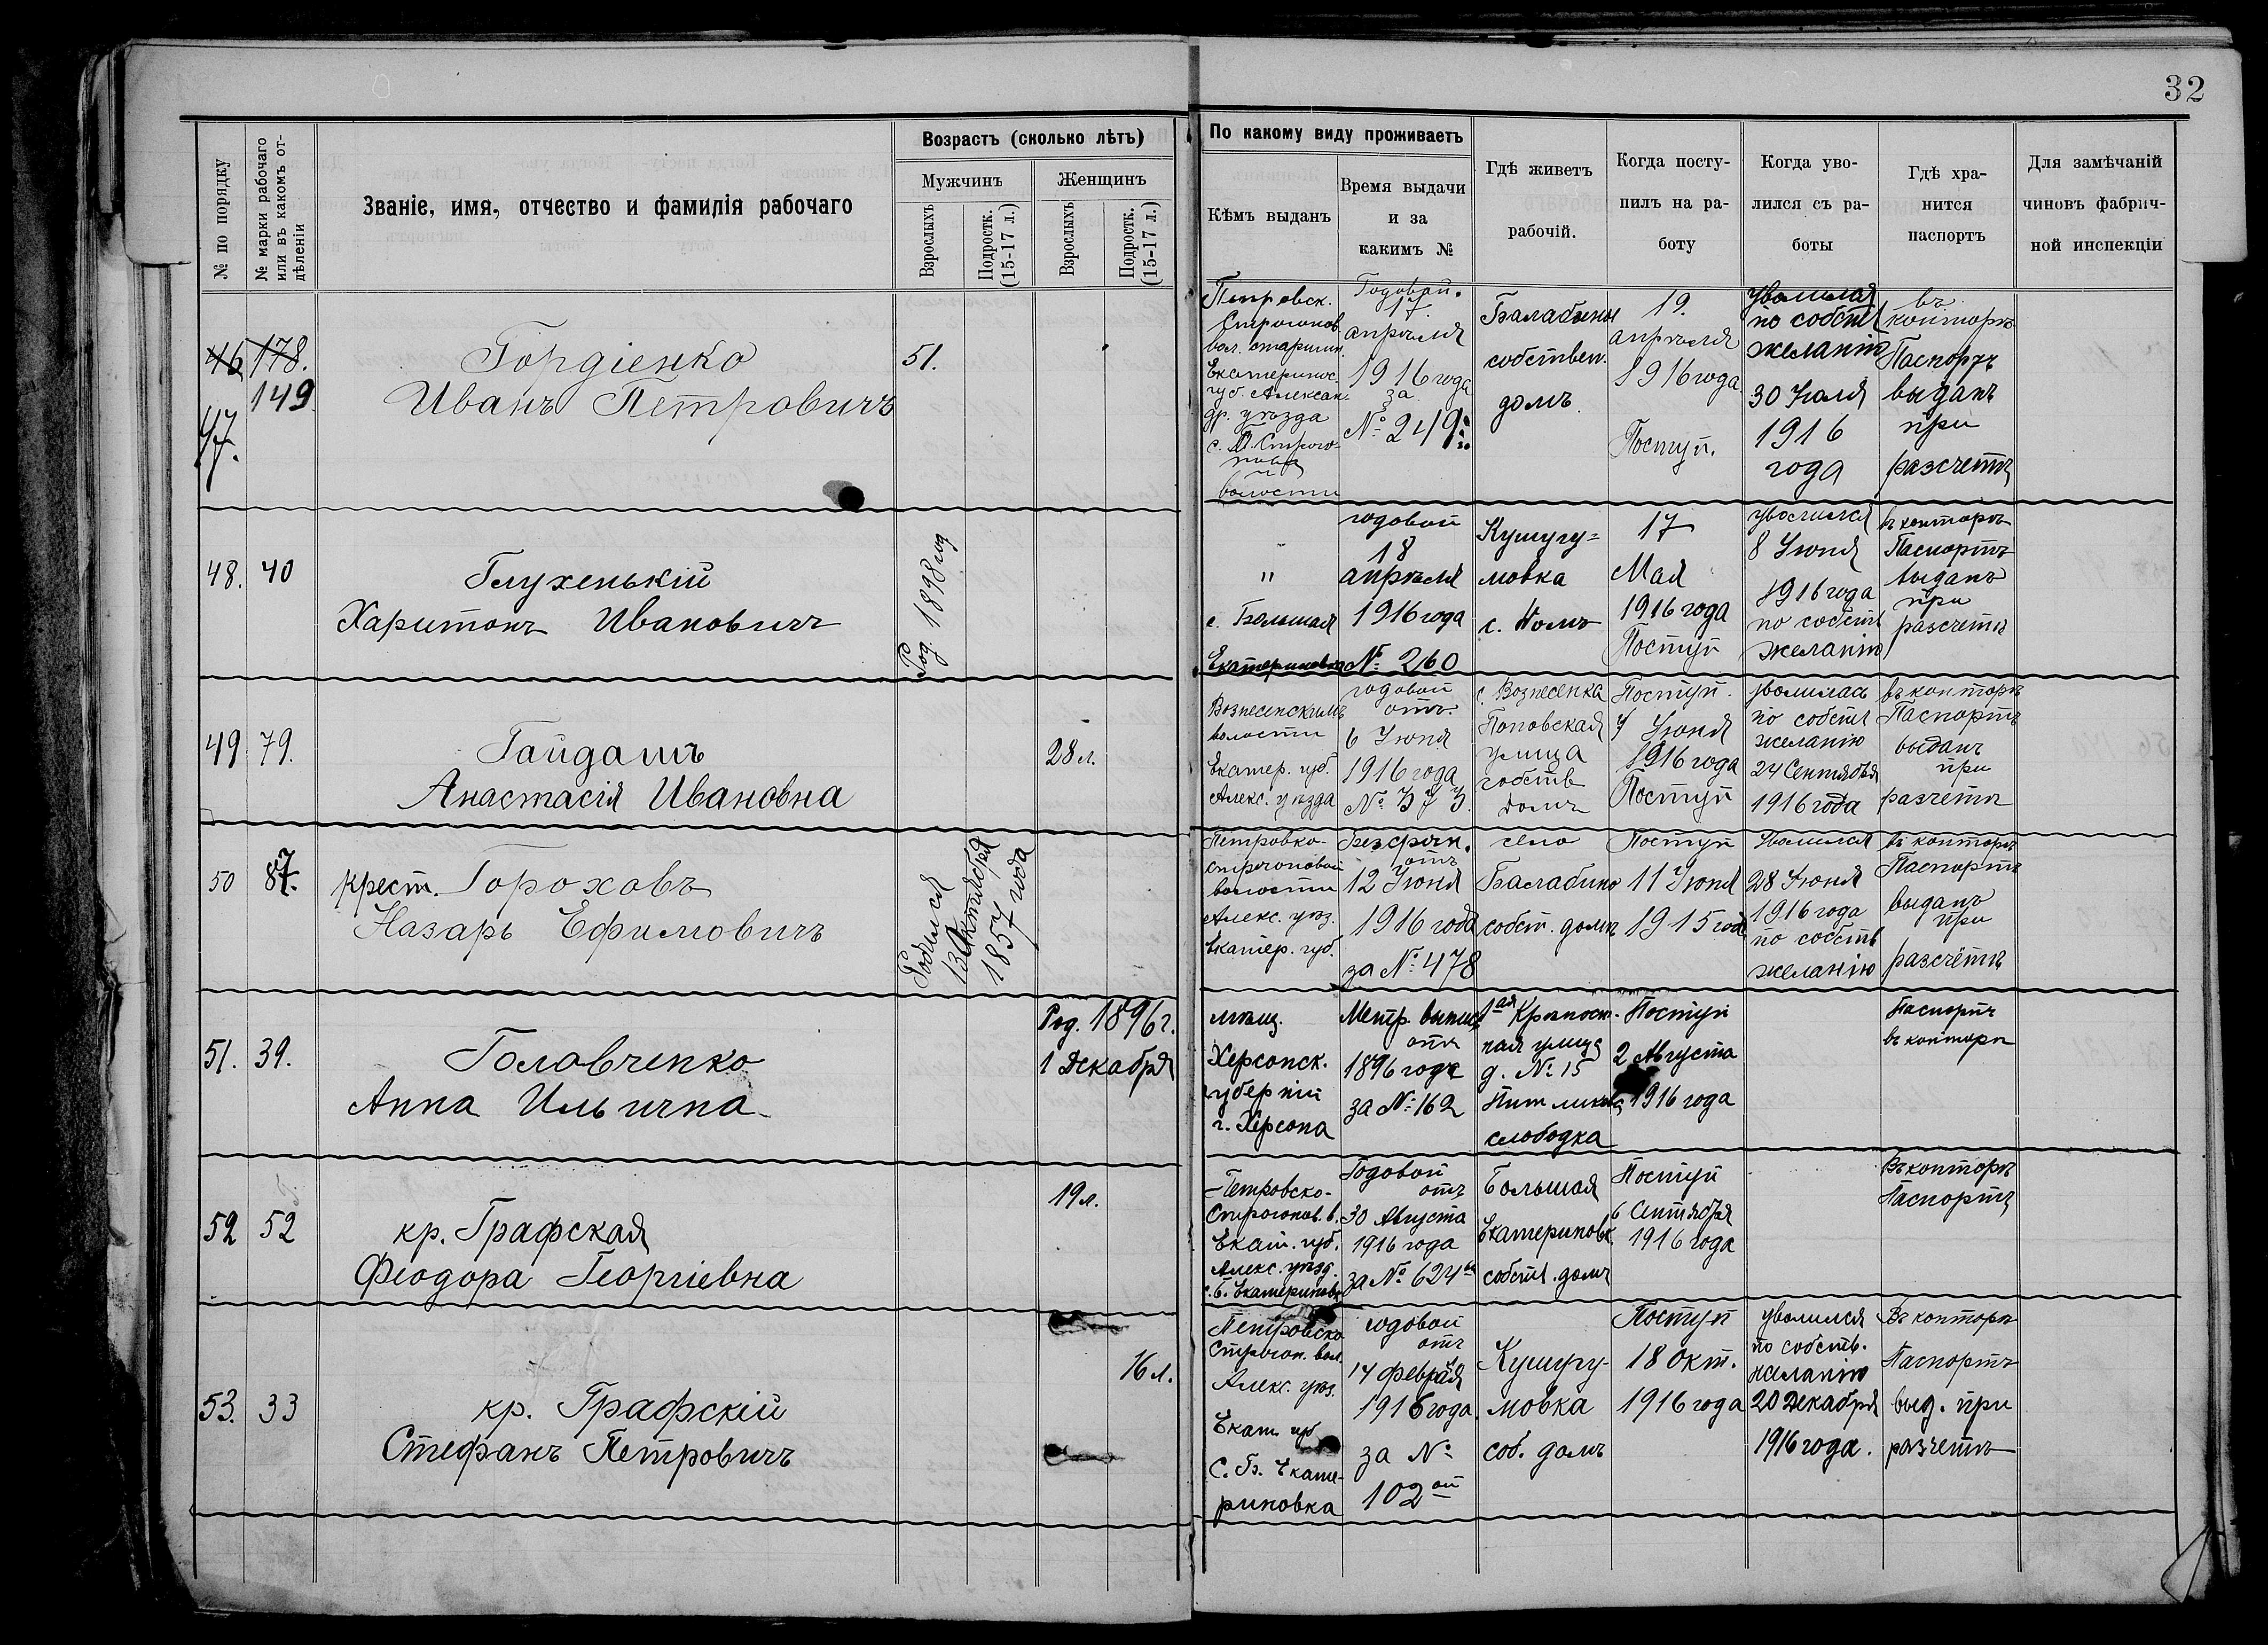 32
№ по порядку
№ марки рабочаго
или въ какомъ от-
дѣленіи
Званіе, имя, отчество и фамилія рабочаго
Возрастъ (сколько лѣтъ)
Мужчинъ
Женщинъ
Взрослыхъ
Подростк.
(15-17 л.)
Взрослыхъ
Подростк.
(15-17 л.)
По какому виду проживаетъ
Кѣмъ выданъ
Время выдачи
и за
какимъ №
Гдѣ живетъ
рабочій.
Когда посту-
пилъ на ра-
боту
Когда уво-
лился съ ра-
боты
Гдѣ хра-
нится
паспортъ
Для замѣчаній
чиновъ фабрич-
ной инспекціи
46
47.
178.
149.
Гордіенко
Иванъ Петровичъ
51.
Петровск.
Строгонов.
вол. старшин.
Екатеринос.
губ. Алексан.
др. уѣзда
с. П. Строго-
волости
Годовой.
17
апрѣля
1916 года
за
№ 249
Балабины
собствен.
домъ.
19.
апрѣля
1916 года
Поступ.
уволился
по собст
желанію
30 Іюля
1916
года
въ
конторѣ
Паспортъ
выданъ
при
разсчетѣ
48.
40
Глухенькій
Харитонъ Ивановичъ
Род. 1898 год
"
с. Большая
Екатериновка
годовой
18
апрѣля
1916 года
№ 260
Кушугу=
мовка
с. домъ
17
Мая
1916 года
Поступ
уволился
8 Іюня
1916 года
по собств
желанію
въ конторѣ
Паспортъ
выданъ
при
разсчетѣ
49
79.
Гайдашъ
Анастасія Ивановна
28 л.
Вознесенскимъ
волости
Екатер. губ.
Алекс. уѣзда
годовой
отъ
6 Іюня
1916 года
№ 373.
с. Вознесенка
Поповская
улица
собств
домъ
Поступ.
7 Іюня
1916 года
Поступ
уволилась
по собств
желанію
24 Сентября
1916 года
въ конторѣ
Паспортъ
выданъ
при
разчетѣ
50
87.
крест. Гороховъ
Назарь Ефимовичъ
Родился
13 Октября
1857 года
Петровко-
строгоновой
волости
Алекс. уѣз.
Екатер. губ.
Безсрочн.
отъ
12 Іюня
1916 года
за № 478
село
Балабино
собст. домъ
Поступ
11 Іюня
1915 год
Уволился
28 Іюня
1916 года
по собств
желанію
въ конторѣ
Паспортъ
выданъ
при
разсчётѣ
51.
39.
Головченко
Анна Ильична
Род. 1896 г.
1 Декабря
мѣщ.
Херсонск.
губерніи
г. Херсона
Метр. выпись
отъ
1896 года
за № 162
1ая Крѣпост-
ная улица
д. № 15
слободка
Поступ
2 Августа
1916 года
Паспортъ
въ конторѣ
52
52
кр. Графская
Феодора Георгіевна
19 л.
Петровско-
Строгонов. в.
Екат. губ.
Алекс. уѣзд.
с. Б. Екатериновк
Годовой
отъ
30 Августа
1916 года
за № 624
Большая
Екатериновк
собств. домъ
Поступ
6 Сентября
1916 года
Въ конторѣ
Паспортъ
53.
33
кр. Графскій
Стефанъ Петровичъ
16 л.
Петровско
Строгон. вол.
Алекс. уѣз.
Екат губ
С. Б. Екате-
риновка
годовой
отъ
14 февраля
1916 года
за №
102ой
Кушугу-
мовка
соб. домъ
Поступ
18 Окт.
1916 года
уволился
по собств.
желанію
20 Декабря
1916 года.
Въ конторѣ
Паспортъ
выд. при
разчетѣ